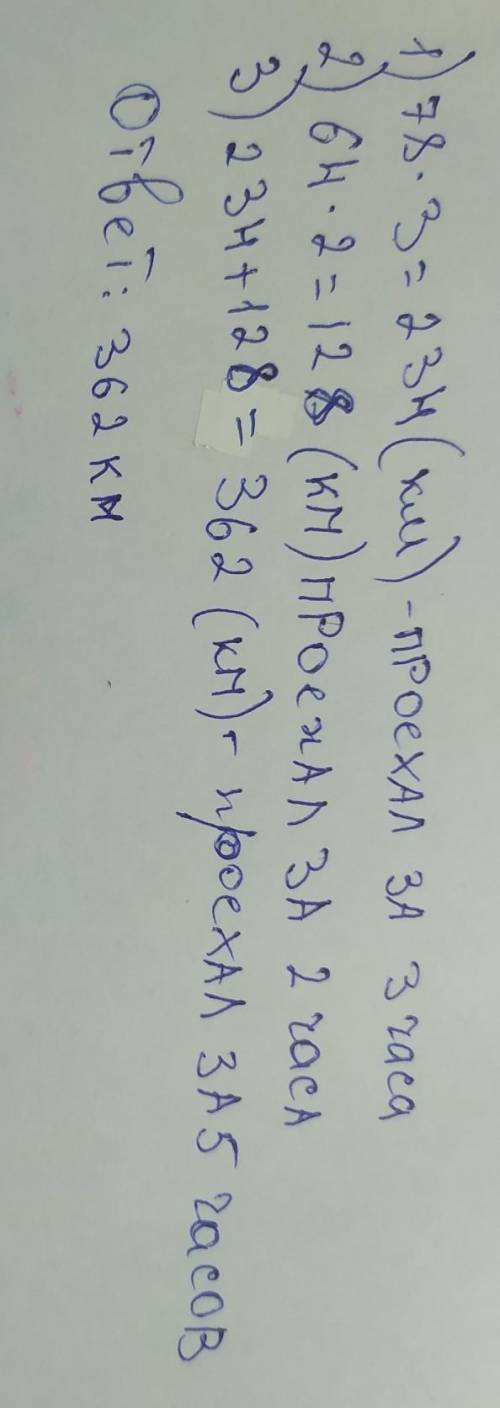 1) 78·3=234(км)-проехал за 3 часа
2) 64·2=128(км)проехал за 2 часа
3) 234+128=362(км)-проехал за 5 часов
Ответ: 362 км